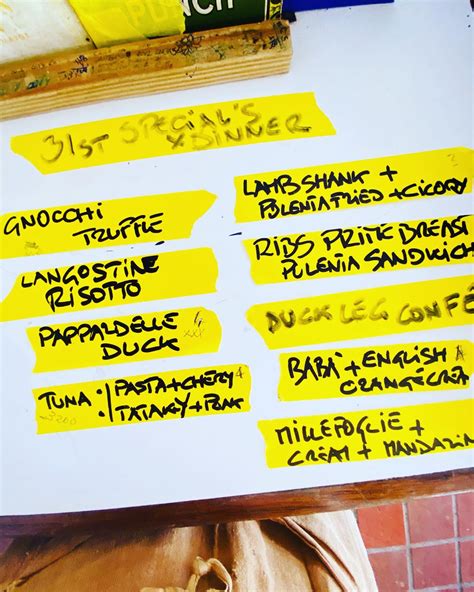 PUNCH
31ST SPECIAL'S
X DINNER
GNOCCHI
TRUFFLE
LANGOSTINE
RISOTTO
PAPPARDELLE
DUCK
TUNA : PASTA + CHERY
TATAKY + PONK
LAMB SHANK +
POLENTA FRIED + CICORY
RIBS PRIME BREAST
POLENTA SANDWICH
DUCK LEG CONFE
BABÀ + ENGLISH
ORANGE CREA
MILLEFOGLIE +
CREAM + MANDARIN